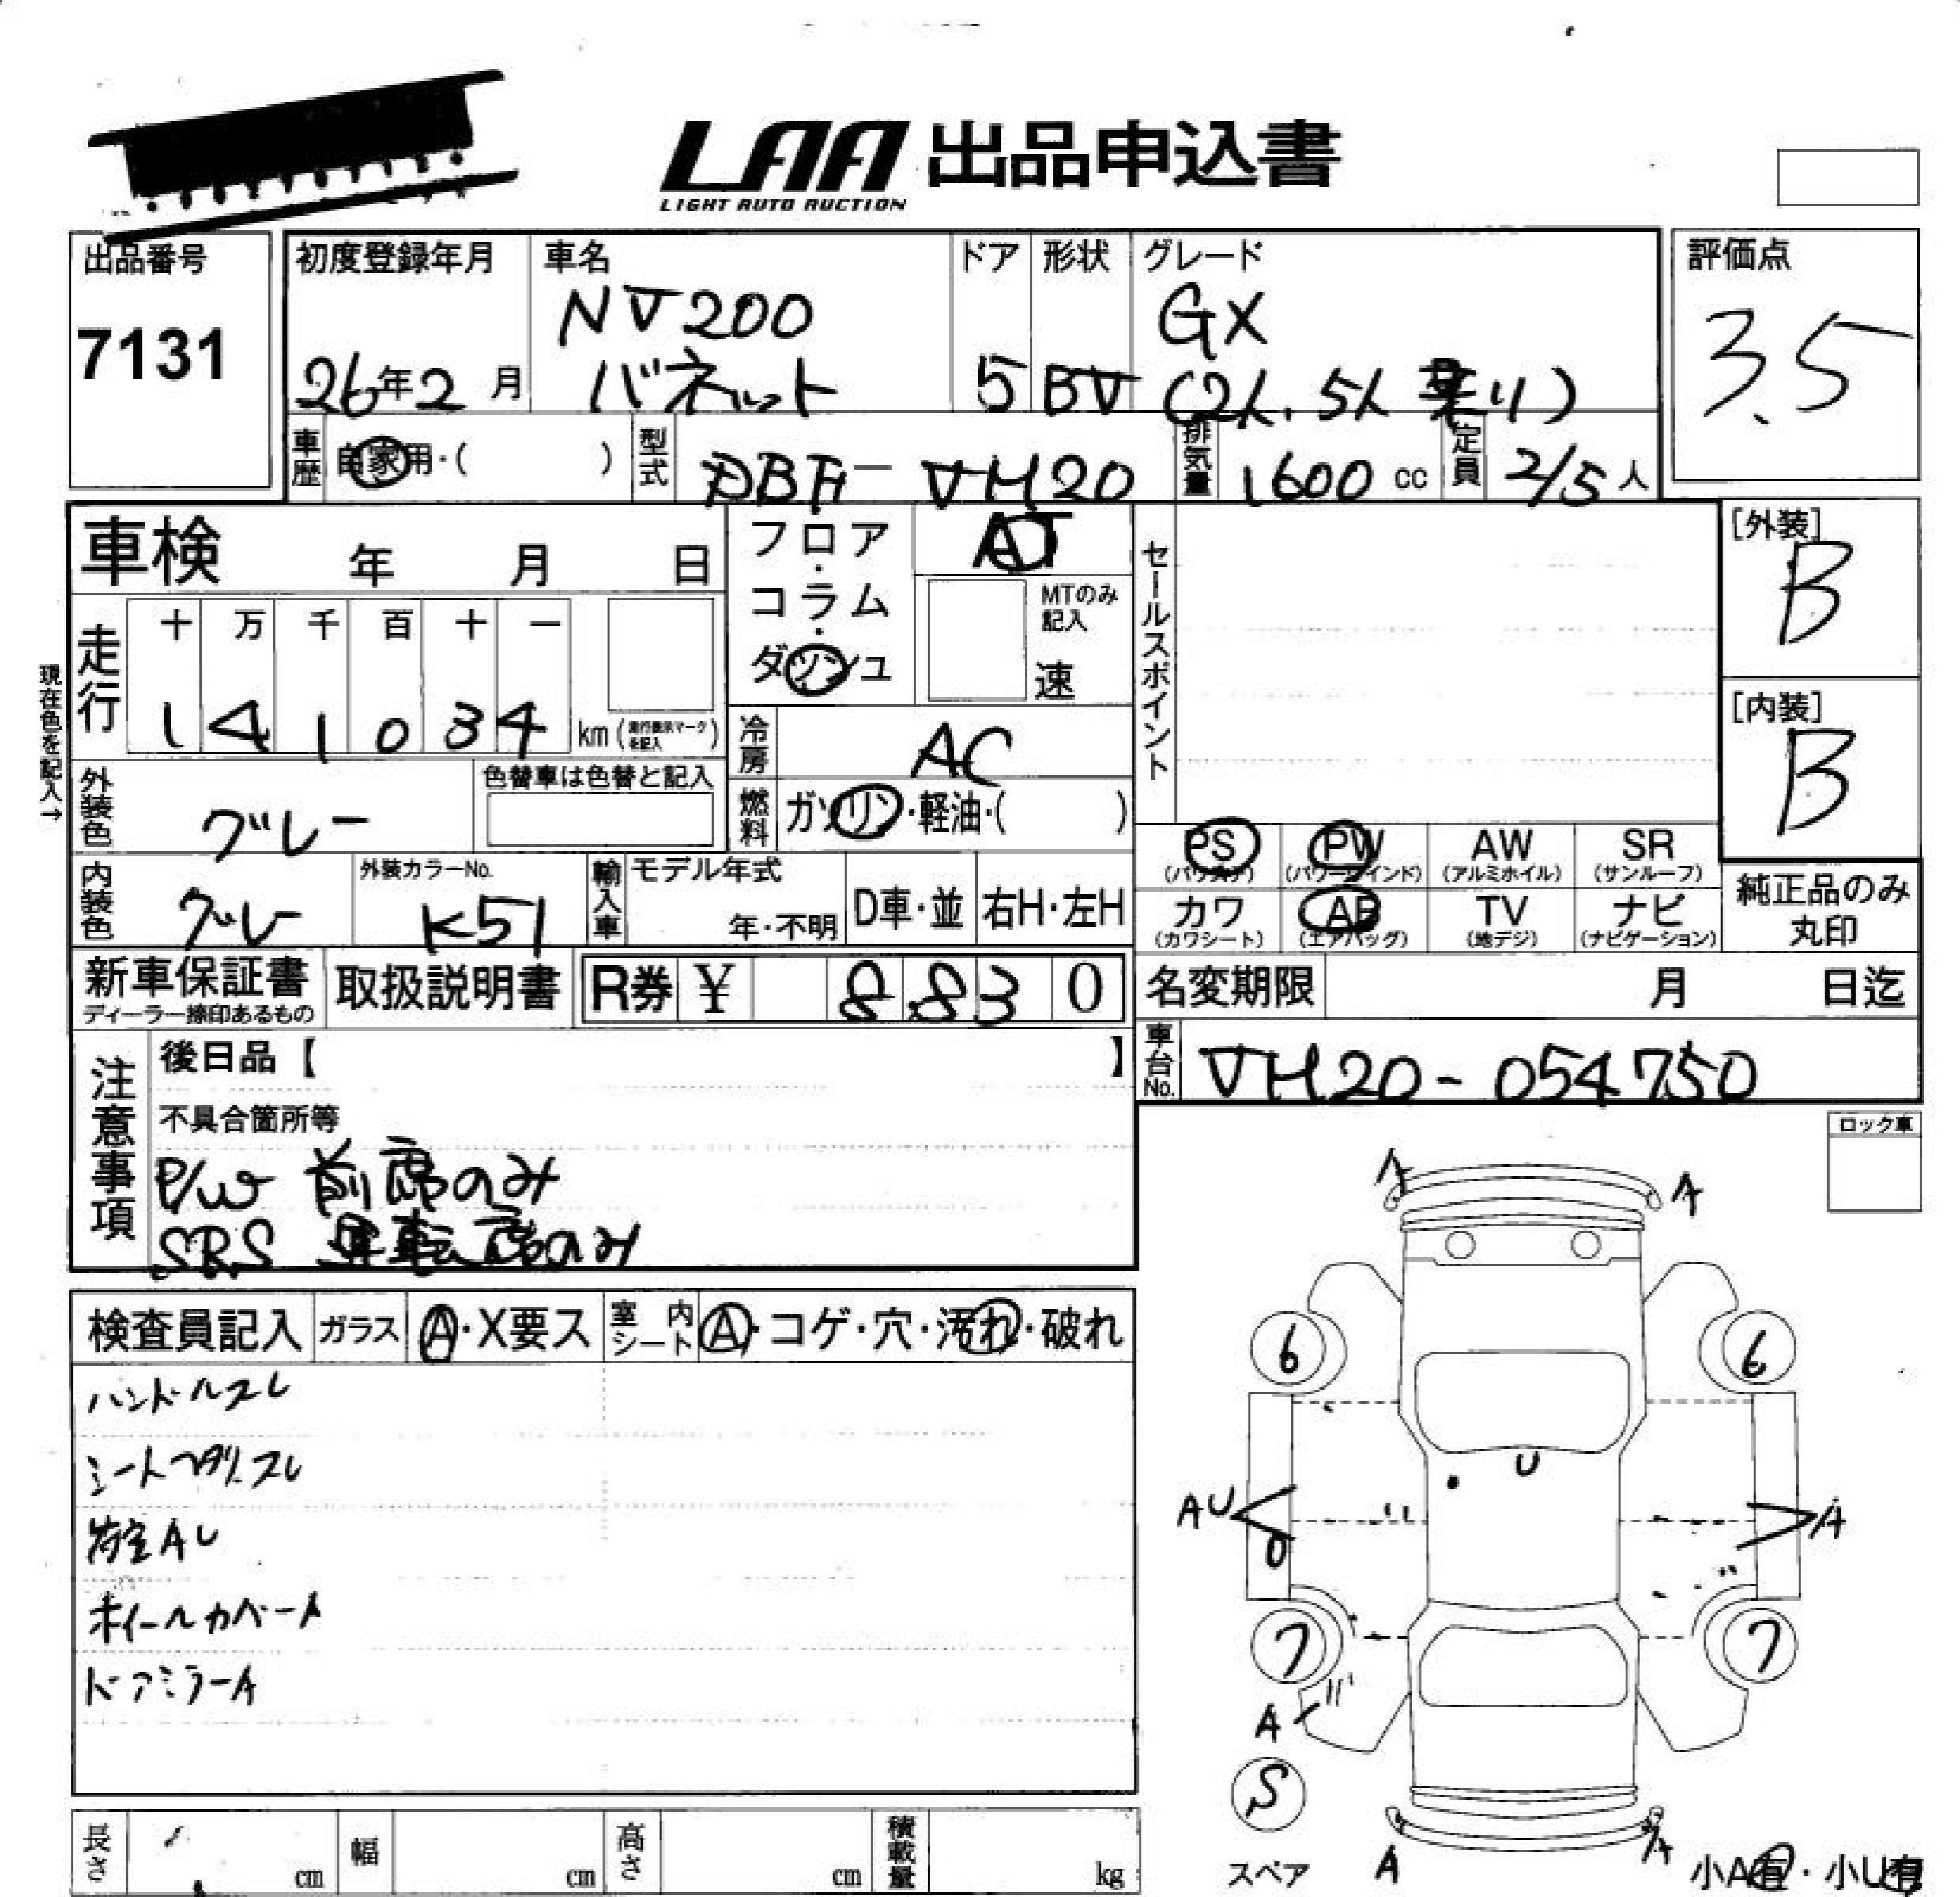 LAA 出品申込書
LIGHT AUTO AUCTION
出品番号
7131
初度登録年月
26年2月
車名
NV200
バネット
ドア
5
形状
BV
グレード
GX
(2人.5人乗り)
評価点
3.5
車歴 自家用・( )
型式 DBF-VM20
排気量 1600 cc
定員 2/5人
車検 年 月 日
フロア・コラム・ダッシュ
AT
MTのみ記入
速
セールスポイント
[外装]
B
[内装]
B
現在色を記入→
走行 十 万 千 百 十 一
1 4 1 0 3 4 km (走行表示マークを記入)
冷房 AC
外装色 グレー
色替車は色替と記入
燃料 ガソリン・軽油・( )
PS (パワステ) PW (パワーウインド) AW (アルミホイル) SR (サンルーフ)
カワ (カワシート) AB (エアバッグ) TV (地デジ) ナビ (ナビゲーション)
純正品のみ
丸印
内装色 グレー
外装カラーNo.
K51
輸入車 モデル年式
年・不明
D車・並 右H・左H
新車保証書
ディーラー捺印あるもの
取扱説明書
R券 ¥ 8830
名変期限 月 日迄
車台No. VM20-054750
注意事項
後日品【 】
不具合箇所等
P/W 前席のみ
SRS 運転席のみ
ロック車
検査員記入 ガラス A・X要ス 室内シート A・コゲ・穴・汚れ・破れ
ハンドルスレ
シートヘタリ.スレ
荷室AU
ホイールカバーA
ドアミラーA
A A
6 6
U
AU A
U
7 7
A
S
スペア
A A
小A有・小U有
長さ cm 幅 cm 高さ cm 積載量 kg